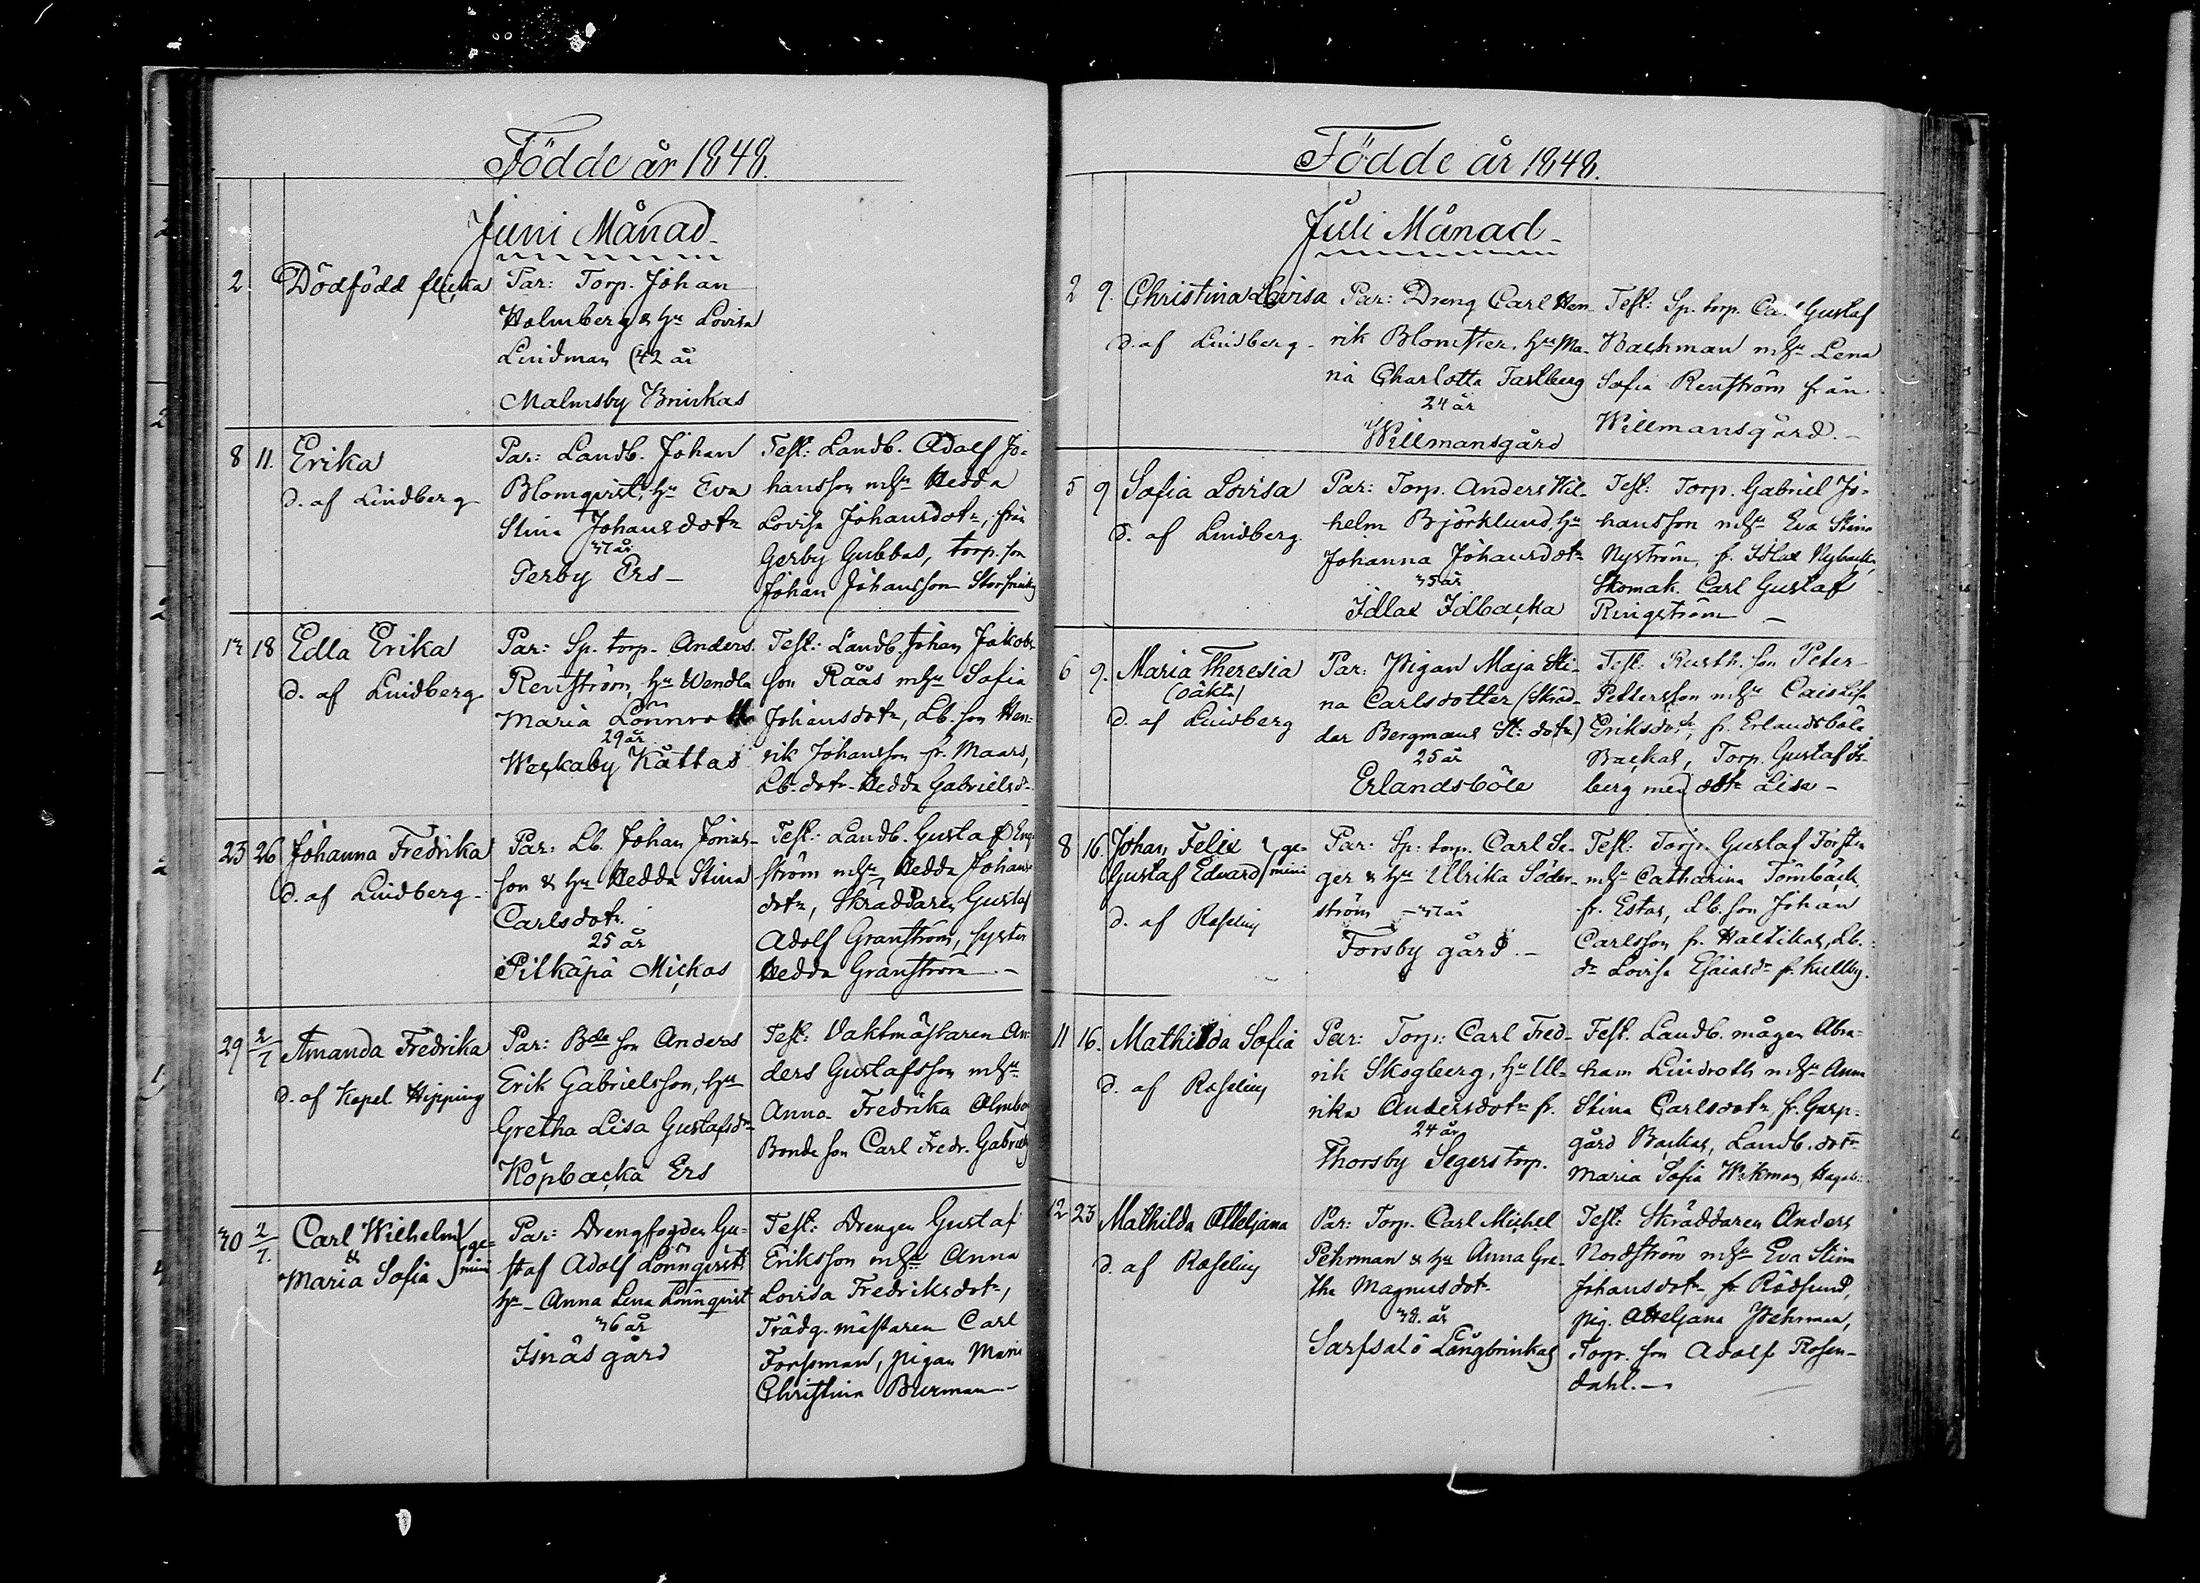 Födde år 1848.
Juni Månad
2. Dödfödd flicka
Par: Torp. Johan
Holmberg & hu Lovisa
Lindman (42 år
Malmsby Brinkas
8 11. Erika
d. af Lindberg
Par: Landb. Johan
Blomqvist, hu Eva
Stina Johansdotr
37 år
Perby Ers
Test: Landb. Adolf Jo-
hansson m hu Hedda
Lovisa Johansdotr, från
Gerby Gubbas, torp. son
Johan Johansson
13 18 Edla Erika
d. af Lindberg
Par: Sp. torp. Anders
Renström, hu Wendla
Maria Lönnroth
29 år
Weckaby Kåttas
Test: Landb. Johan Jakobs-
son Rääs m hu Sofia
Johansdotr, Lb. son Hen-
rik Johansson fr. Maars,
Lb. dotr Hedda Gabrielsdr
23 26 Johanna Fredrika
d. af Lindberg
Par: Lb. Johan Jonas-
son & hu Hedda Stina
Carlsdotr
25 år
Pitkäpä Mickos
Test: Landb. Gustaf Eng-
ström m hu Hedda Johans-
dotr, Skräddaren Gustaf
Adolf Granström, syster
Hedda Granström
29 2/7 Amanda Fredrika
d. af Kapel Hipping
Par: Bde son Anders
Erik Gabrielsson, hu
Gretha Lisa Gustafsdr
Köpbacka Ers
Test: Vaktmästaren An-
ders Gustafsson m hu
Anna Fredrika Almbo
Bonde son Carl Fredr. Gabriels
30 2/7. Carl Wilhelm } ge-
& mini
Maria Sofia
Par: Drengfogden Gu-
staf Adolf Lönnqvist
hu Anna Lena Lönnqvist
36 år
Isnäs gård
Test: Drengen Gustaf
Eriksson m hu Anna
Lovisa Fredriksdotr,
Trädg. mästaren Carl
Forssman, pigan Maria
Christina Burman
Födde år 1848.
Juli Månad
2 9. Christina Lovisa
d. af Lindberg
Par: Dreng Carl Hen-
rik Blomster, hu Ma-
ria Charlotta Farlberg
24 år
Willmansgård
Test: Sp. torp. Carl Gustaf
Backman m hu Lena
Sofia Renström från
Willmansgård.
5 9 Sofia Lovisa
d. af Lindberg
Par: Torp. Anders Wil-
helm Björklund, hu
Johanna Johansdotr
35 år
Idlax Idbacka
Test: Torp. Gabriel Jo-
hansson m hu Eva Stina
Nyström, fr. Idlax Nybacka,
Skomak. Carl Gustaf
Ringström
6 9. Maria Theresia
(oäkta)
d. af Lindberg
Par: Pigan Maja Sti-
na Carlsdotter (Skräd-
dar Bergmans St: dotr)
25 år
Erlandsböle
Test: Rusth. son Peter
Pettersson m hu Cajsa Lisa
Eriksdotr, fr. Erlandsböle
Backas, Torp. Gustaf
berg med dotr Lisa
8 16. Johan Felix } ge-
Gustaf Edvard mini
d. af Roselius
Par: Sp. torp. Carl Se-
ger & hu Ulrika Söder-
ström 37 år
Forsby gård.
Test: Torp. Gustaf
m hu Catharina Törnbäck,
fr. Estas, Lb. son Johan
Carlsson fr. Haltikas, Lb.
dr Lovisa Esaiasdr fr. Kullby.
11 16. Mathilda Sofia
d. af Roselius
Par: Torp. Carl Fred-
rik Skogberg, hu Ul-
rika Andersdotr fr.
24 år
Thorsby Segerstorp.
Test. Landb. mågen Abra-
ham Lindroth m hu Anna
Stina Carlsdotr, fr. Garp-
gård Backas, Landb. dotr
Maria Sofia Wikman,
12 23 Mathilda Atteljana
d. af Roselius
Par: Torp. Carl Michel
Pehrman & hu Anna Gre-
tha Magnusdotr
39. år
Sarfsalö Långbrinkas
Test: Skräddaren Anders
Nordström m hu Eva Stina
Johansdotr, fr. Rödsund,
pig. Atteljana Pehrman,
Torp. son Adolf Rosen-
dahl.